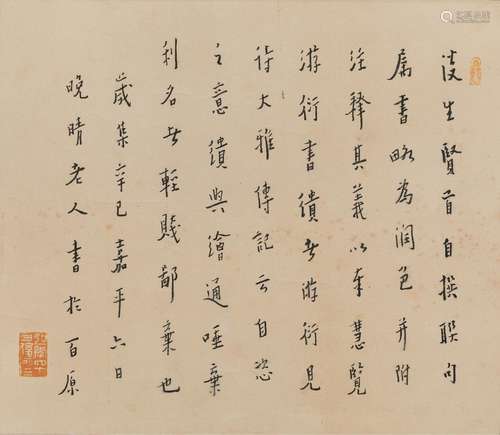 生賢首自撰聯句
属書略為潤色并附
注釋其義以奉慧覽
游衍書繢者游衍見
诗大雅傳記云自恣
之意繢與繪通唾棄
利名者輕賤鄙棄也
歲集辛巳嘉平六日
晚晴老人書於百原